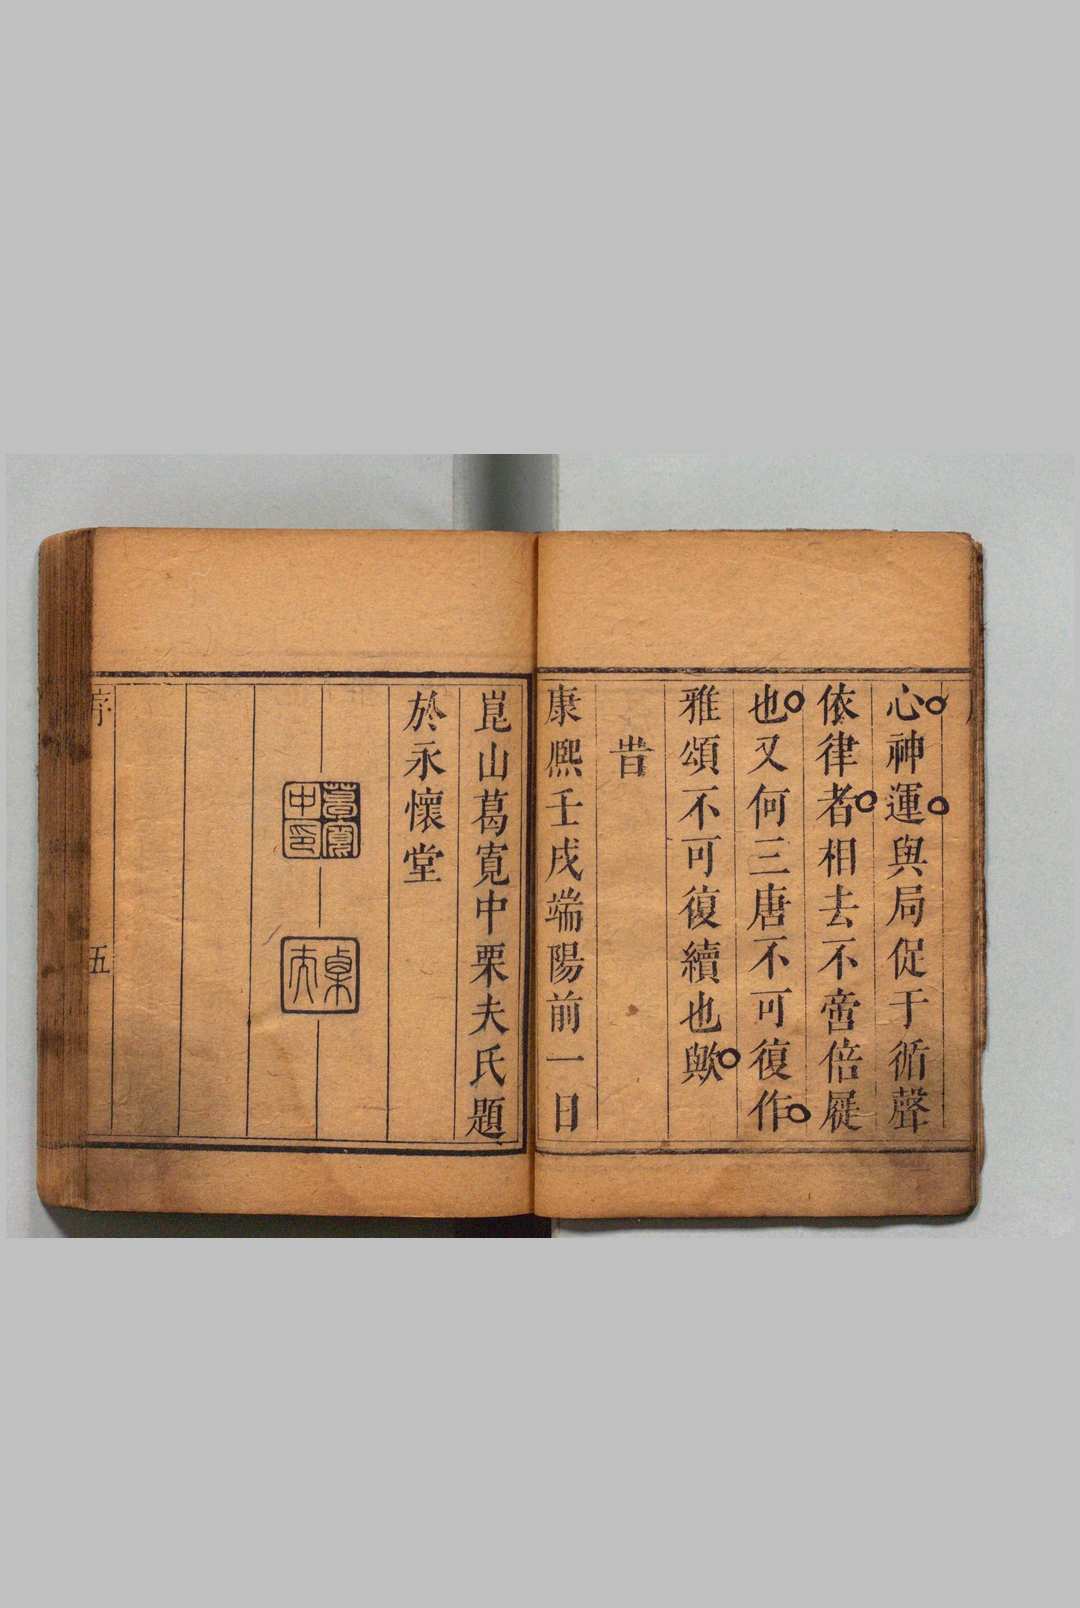 心神運與局促于循聲
依律者相去不啻倍屣
也又何三唐不可復作
雅頌不可復續也歟
旹
康熙壬戌端陽前一日
崑山葛寛中栗夫氏題
於永懷堂
葛寛中印
栗夫
序
五